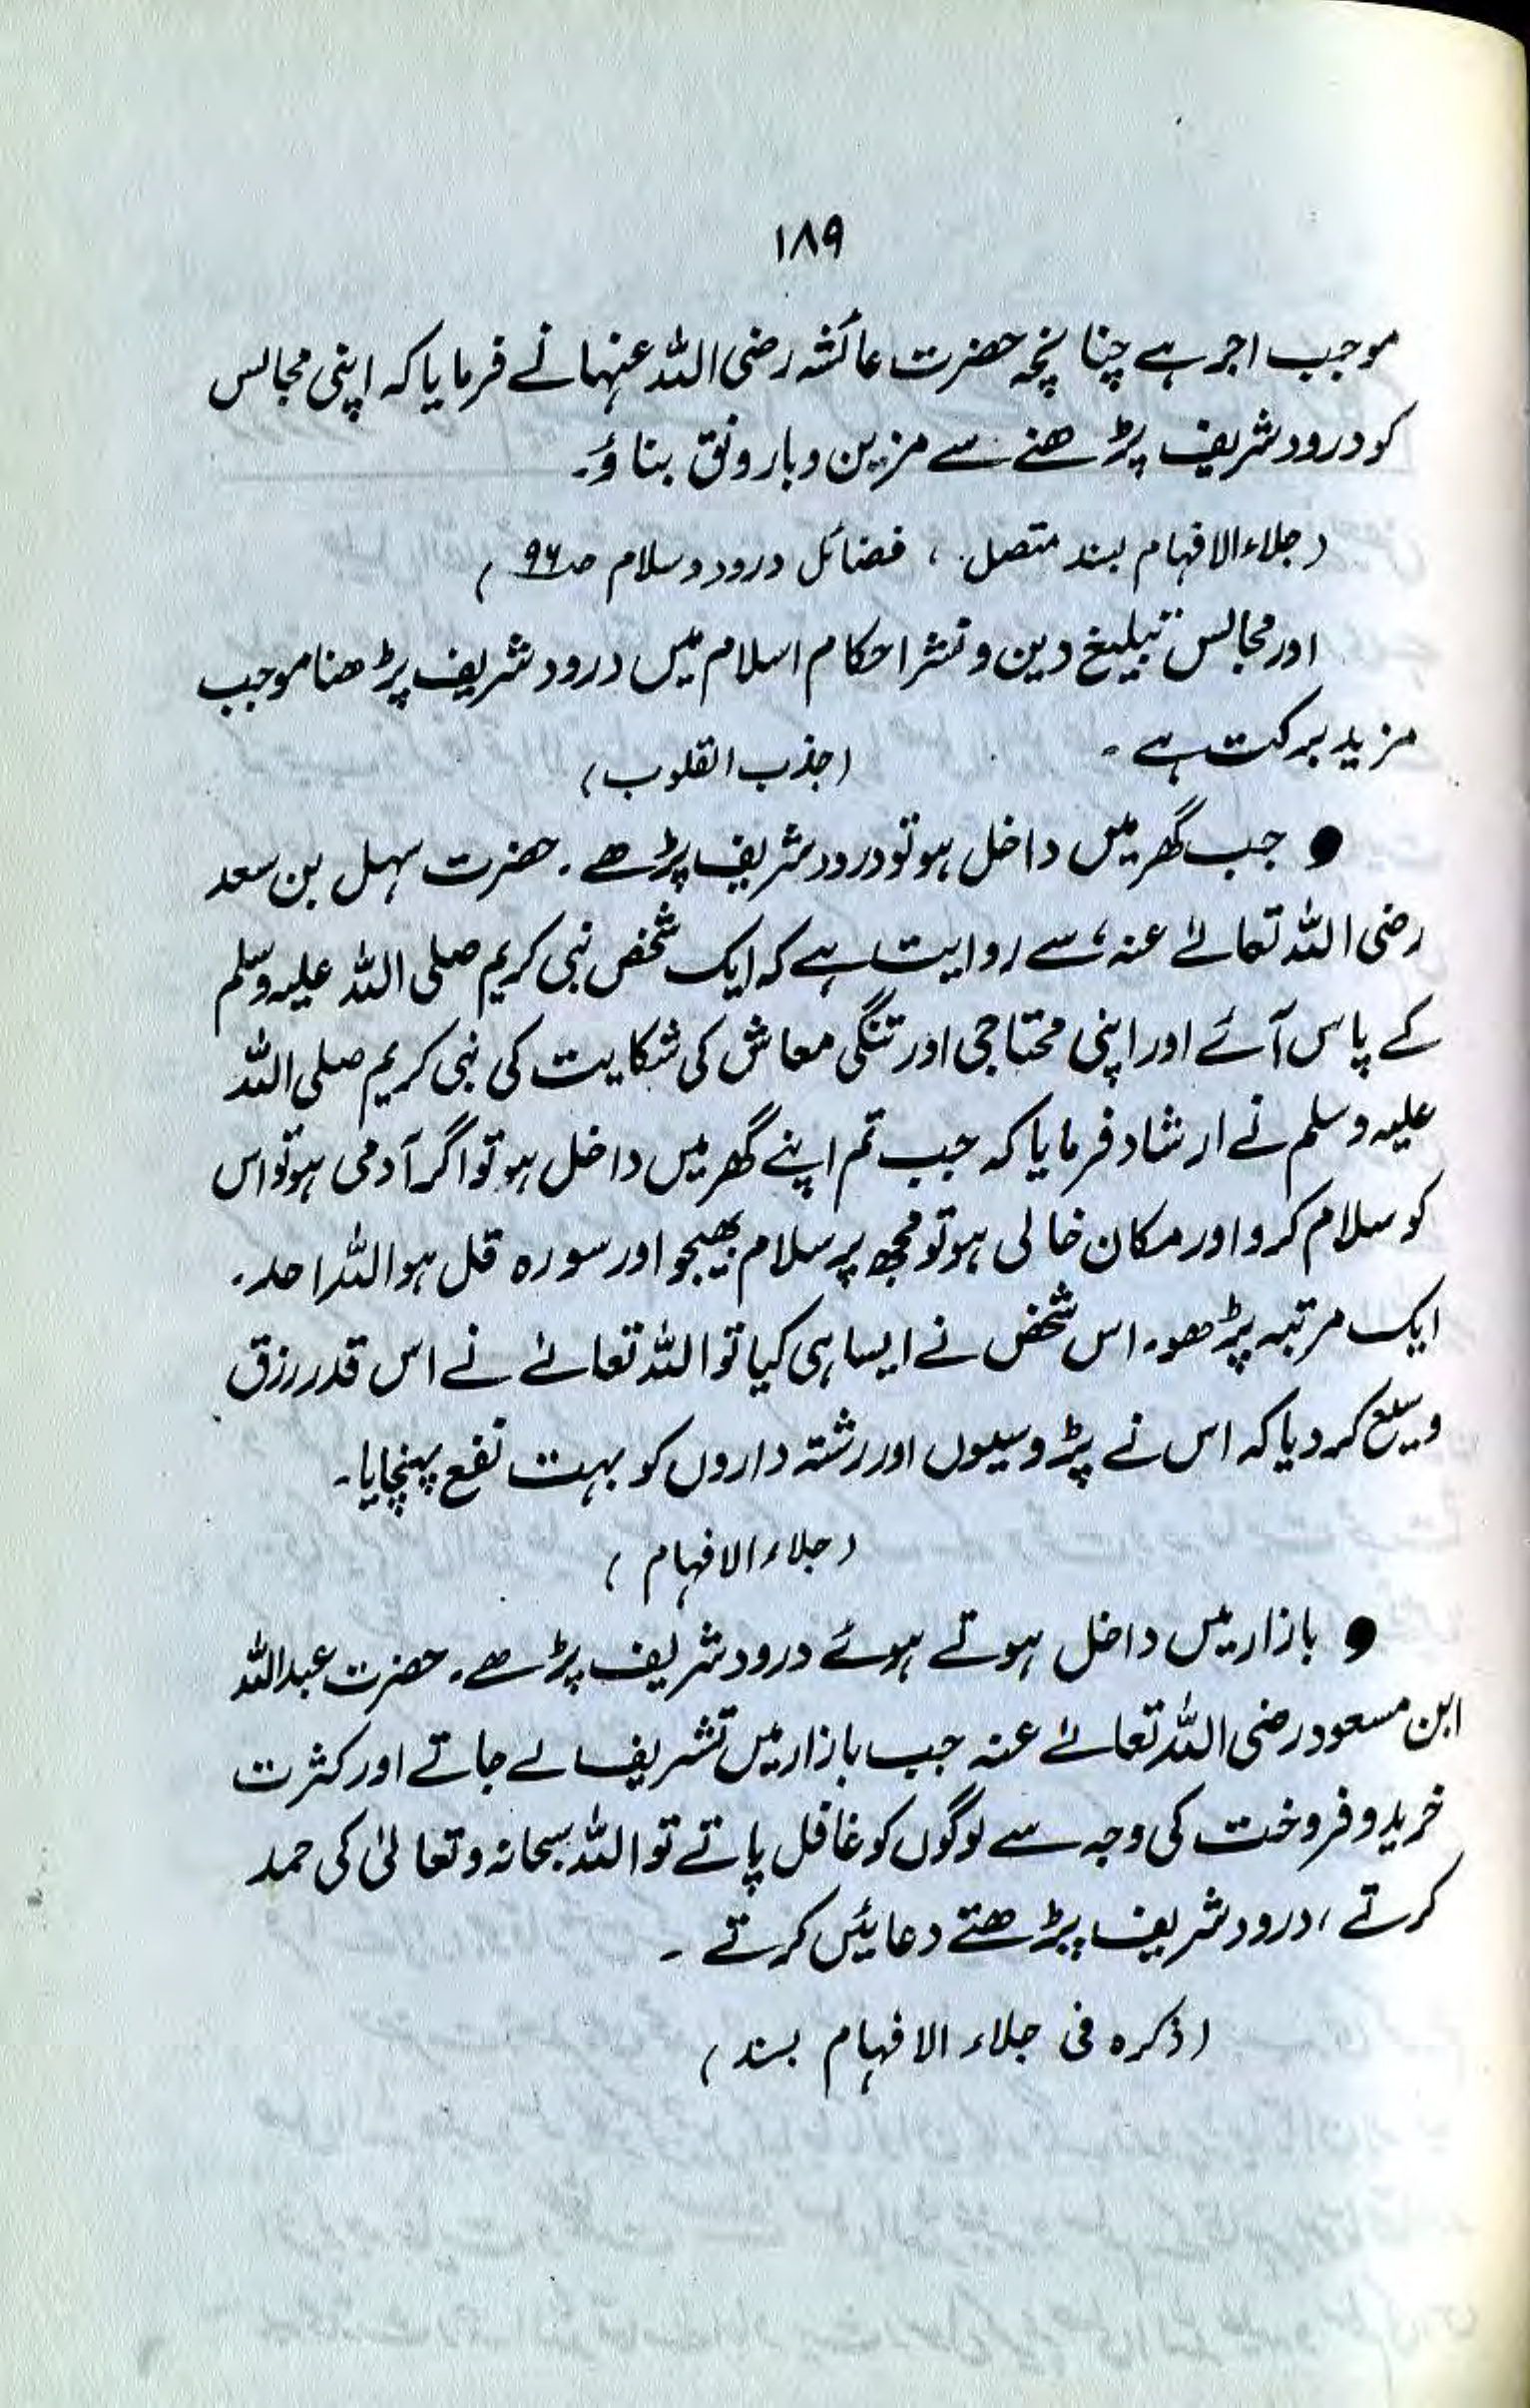 ۱۸۹
موجب اجر ہے چنانچہ حضرت عائشہ رضی اللہ عنہا نے فرمایا کہ اپنی مجالس
کو درود شریف پڑھنے سے مزین و بارونق بناؤ۔
(جلاء الافہام بسند متصل، فضائل درود و سلام صـ ۹۶)
اور مجالس تبلیغ دین و نشر احکام اسلام میں درود شریف پڑھنا موجب
مزید برکت ہے۔ (جذب القلوب)
● جب گھر میں داخل ہو تو درود شریف پڑھے۔ حضرت سہل بن سعد
رضی اللہ تعالےٰ عنہ، سے روایت ہے کہ ایک شخص نبی کریم صلی اللہ علیہ وسلم
کے پاس آئے اور اپنی محتاجی اور تنگی معاش کی شکایت کی نبی کریم صلی اللہ
علیہ وسلم نے ارشاد فرمایا کہ جب تم اپنے گھر میں داخل ہو تو اگر آدمی ہو تو اس
کو سلام کرو اور مکان خالی ہو تو مجھ پر سلام بھیجو اور سورہ قل ہو اللہ احد۔
ایک مرتبہ پڑھو۔ اس شخص نے ایسا ہی کیا تو اللہ تعالےٰ نے اس قدر رزق
وسیع کر دیا کہ اس نے پڑوسیوں اور رشتہ داروں کو بہت نفع پہنچایا۔
(جلاء الافہام)
● بازار میں داخل ہوتے ہوئے درود شریف پڑھے۔ حضرت عبداللہ
ابن مسعود رضی اللہ تعالےٰ عنہ جب بازار میں تشریف لے جاتے اور کثرت
خرید و فروخت کی وجہ سے لوگوں کو غافل پاتے تو اللہ سبحانہ و تعالیٰ کی حمد
کرتے، درود شریف پڑھتے دعائیں کرتے۔
(ذکرہ فی جلاء الافہام بسند)